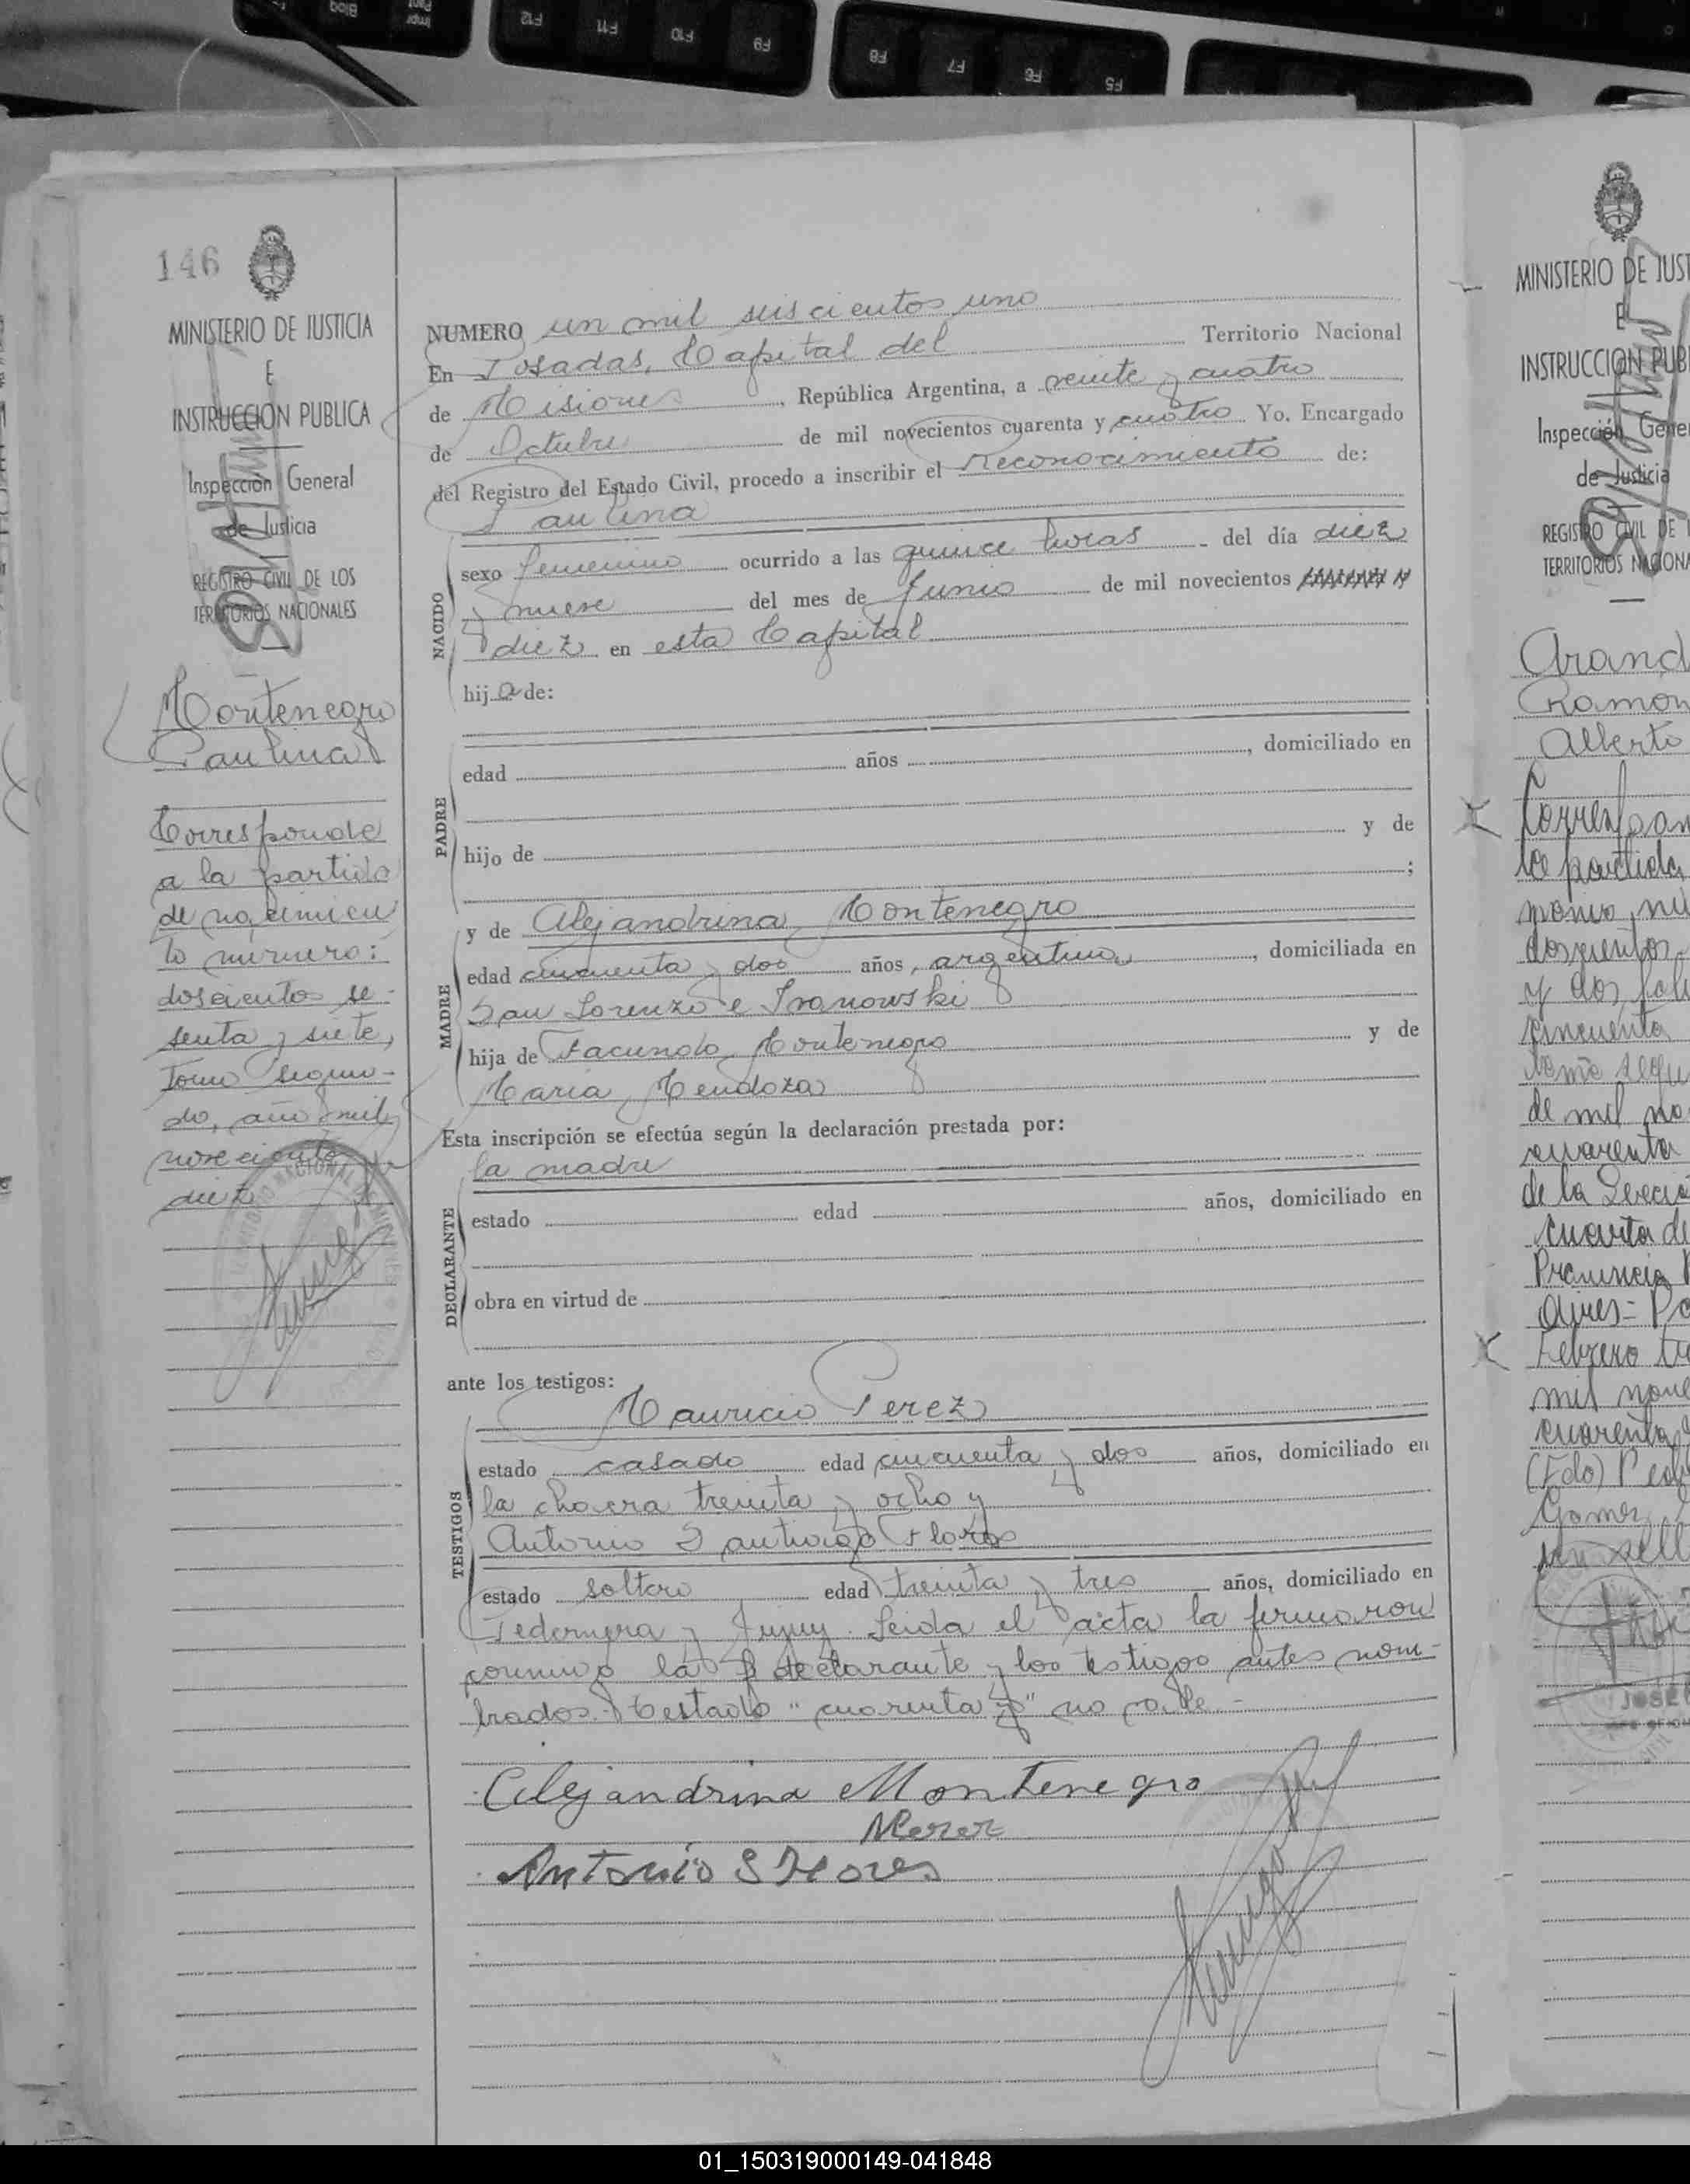 Impr
Pant
Bloq
F12
F11
F10
F9
F8
F7
F6
F5
146
MINISTERIO DE JUSTICIA
E
INSTRUCCION PUBLICA
Inspección General
de Justicia
REGISTRO CIVIL DE LOS
TERRITORIOS NACIONALES
Montenegro
Paulina
Corresponde
a la partida
de nacimien
to número:
doscientos se-
senta y siete,
Tomo segun-
do, año mil
novecientos
diez
NUMERO un mil seiscientos uno
En Posadas, Capital del Territorio Nacional
de Misiones, República Argentina, a veinte y cuatro
de Octubre de mil novecientos cuarenta y cuatro Yo. Encargado
del Registro del Estado Civil, procedo a inscribir el Reconocimiento de:
Paulina
NACIDO
sexo femenino ocurrido a las quince horas del día diez
y nueve del mes de Junio de mil novecientos
diez en esta Capital
hij a de:
PADRE
edad años , domiciliado en
hijo de y de
;
MADRE
y de Alejandrina Montenegro
edad cincuenta y dos años, argentina, domiciliada en
San Lorenzo e Ivanowski
hija de Facundo Montenegro y de
Maria Mendoza
Esta inscripción se efectúa según la declaración prestada por:
la madre
DECLARANTE
estado edad años, domiciliado en
obra en virtud de
ante los testigos:
TESTIGOS
Mauricio Perez
estado casado edad cincuenta y dos años, domiciliado en
la chacra treinta y ocho y
Antonio Santiago Flores
estado soltero edad treinta y tres años, domiciliado en
Pedernera y Jujuy. Leida el acta la firmaron
conmigo la declarante y los testigos antes nom-
brados. Testado "cuarenta y" no vale.-
Alejandrina Montenegro
MPerez
Antonio S Flores
MINISTERIO DE JUST
E
INSTRUCCION PUB
Inspección Gene
de Justicia
REGISTRO CIVIL DE L
TERRITORIOS NACIONA
Arand
Ramon
Alberto
Correspon
la partida
doscientos
y dos fol
cincuenta
tomo segu
de mil no
cuarenta
de la Secció
cuarta de
Provincia B
Aires = Po
Febrero tr
mil nove
cuarenta
(Fdo) Ped
Gomez
un sell
JOSE
01_150319000149-041848